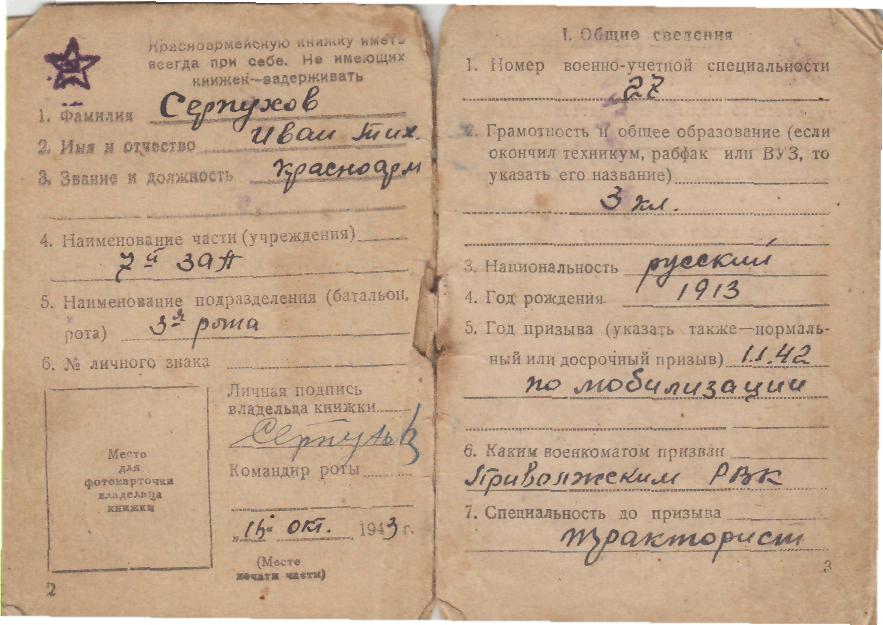 Красноармейскую книжку иметь
всегда при себе. Не имеющих
книжек—задерживать
1. Фамилия Серпухов
2. Имя и отчество Иван Тих.
3. Звание и должность красноарм
4. Наименование части (учреждения)
7й ЗАП
5. Наименование подразделения (батальон,
рота) 3я рота
6. № личного знака
Место
для
фотокарточки
владельца
книжки
Личная подпись
владельца книжки
Командир роты
„15" окт. 1943 г.
(Место
печати части)
2
I. Общие сведения
1. Номер военно-учетной специальности
27
2. Грамотность и общее образование (если
окончил техникум, рабфак или ВУЗ, то
указать его название)
3 кл.
3. Национальность русский
4. Год рождения 1913
5. Год призыва (указать также—нормаль-
ный или досрочный призыв) 1.1.42
по мобилизации
6. Каким военкоматом призван
Приволжским РВК
7. Специальность до призыва
тракторист
3